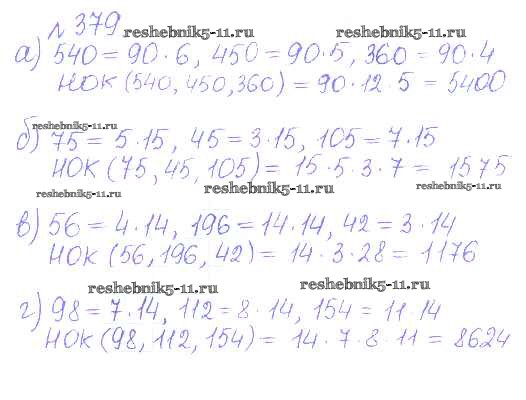 № 379
reshebnik5-11.ru reshebnik5-11.ru
а) 540 = 90 · 6, 450 = 90 · 5, 360 = 90 · 4
НОК (540, 450, 360) = 90 · 12 · 5 = 5400
reshebnik5-11.ru
б) 75 = 5 · 15, 45 = 3 · 15, 105 = 7 · 15
НОК (75, 45, 105) = 15 · 5 · 3 · 7 = 1575
reshebnik5-11.ru reshebnik5-11.ru reshebnik5-11.ru
в) 56 = 4 · 14, 196 = 14 · 14, 42 = 3 · 14
НОК (56, 196, 42) = 14 · 3 · 28 = 1176
reshebnik5-11.ru reshebnik5-11.ru
г) 98 = 7 · 14, 112 = 8 · 14, 154 = 11 · 14
НОК (98, 112, 154) = 14 · 7 · 8 · 11 = 8624